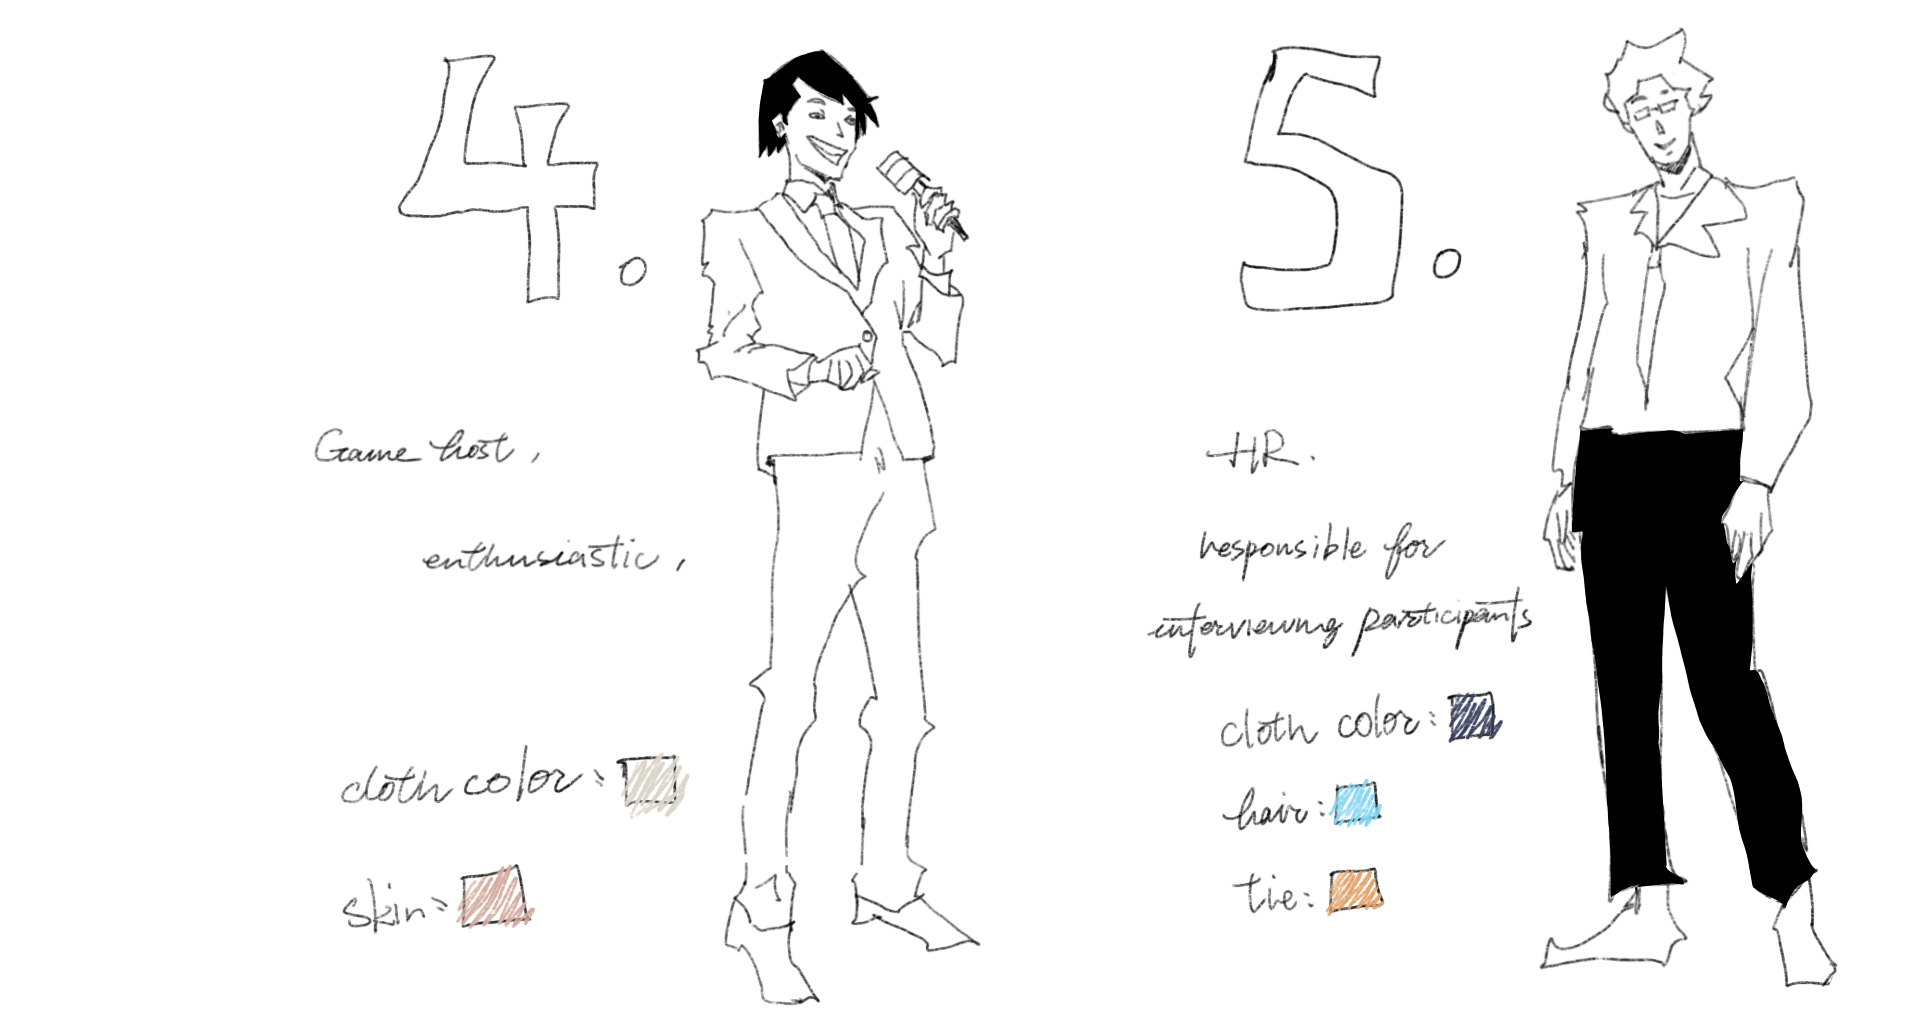 4.
Game host,
enthusiastic,
cloth color:
skin:
5.
HR.
responsible for
interviewing participants
cloth color:
hair:
tie: